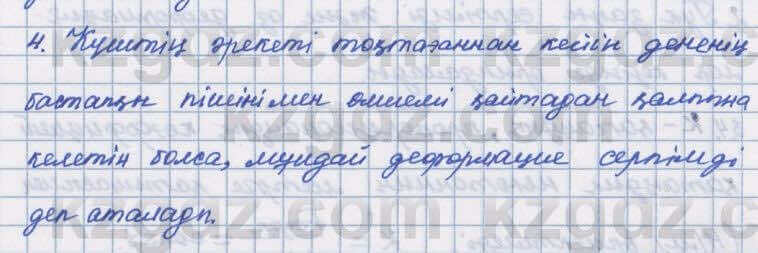 4. Күштің әрекеті тоқтағаннан кейін дененің
бастапқы пішіні мен өлшемі қайтадан қалпына
келетін болса, мұндай деформация серпімді
деп аталады.
kzgdz.com